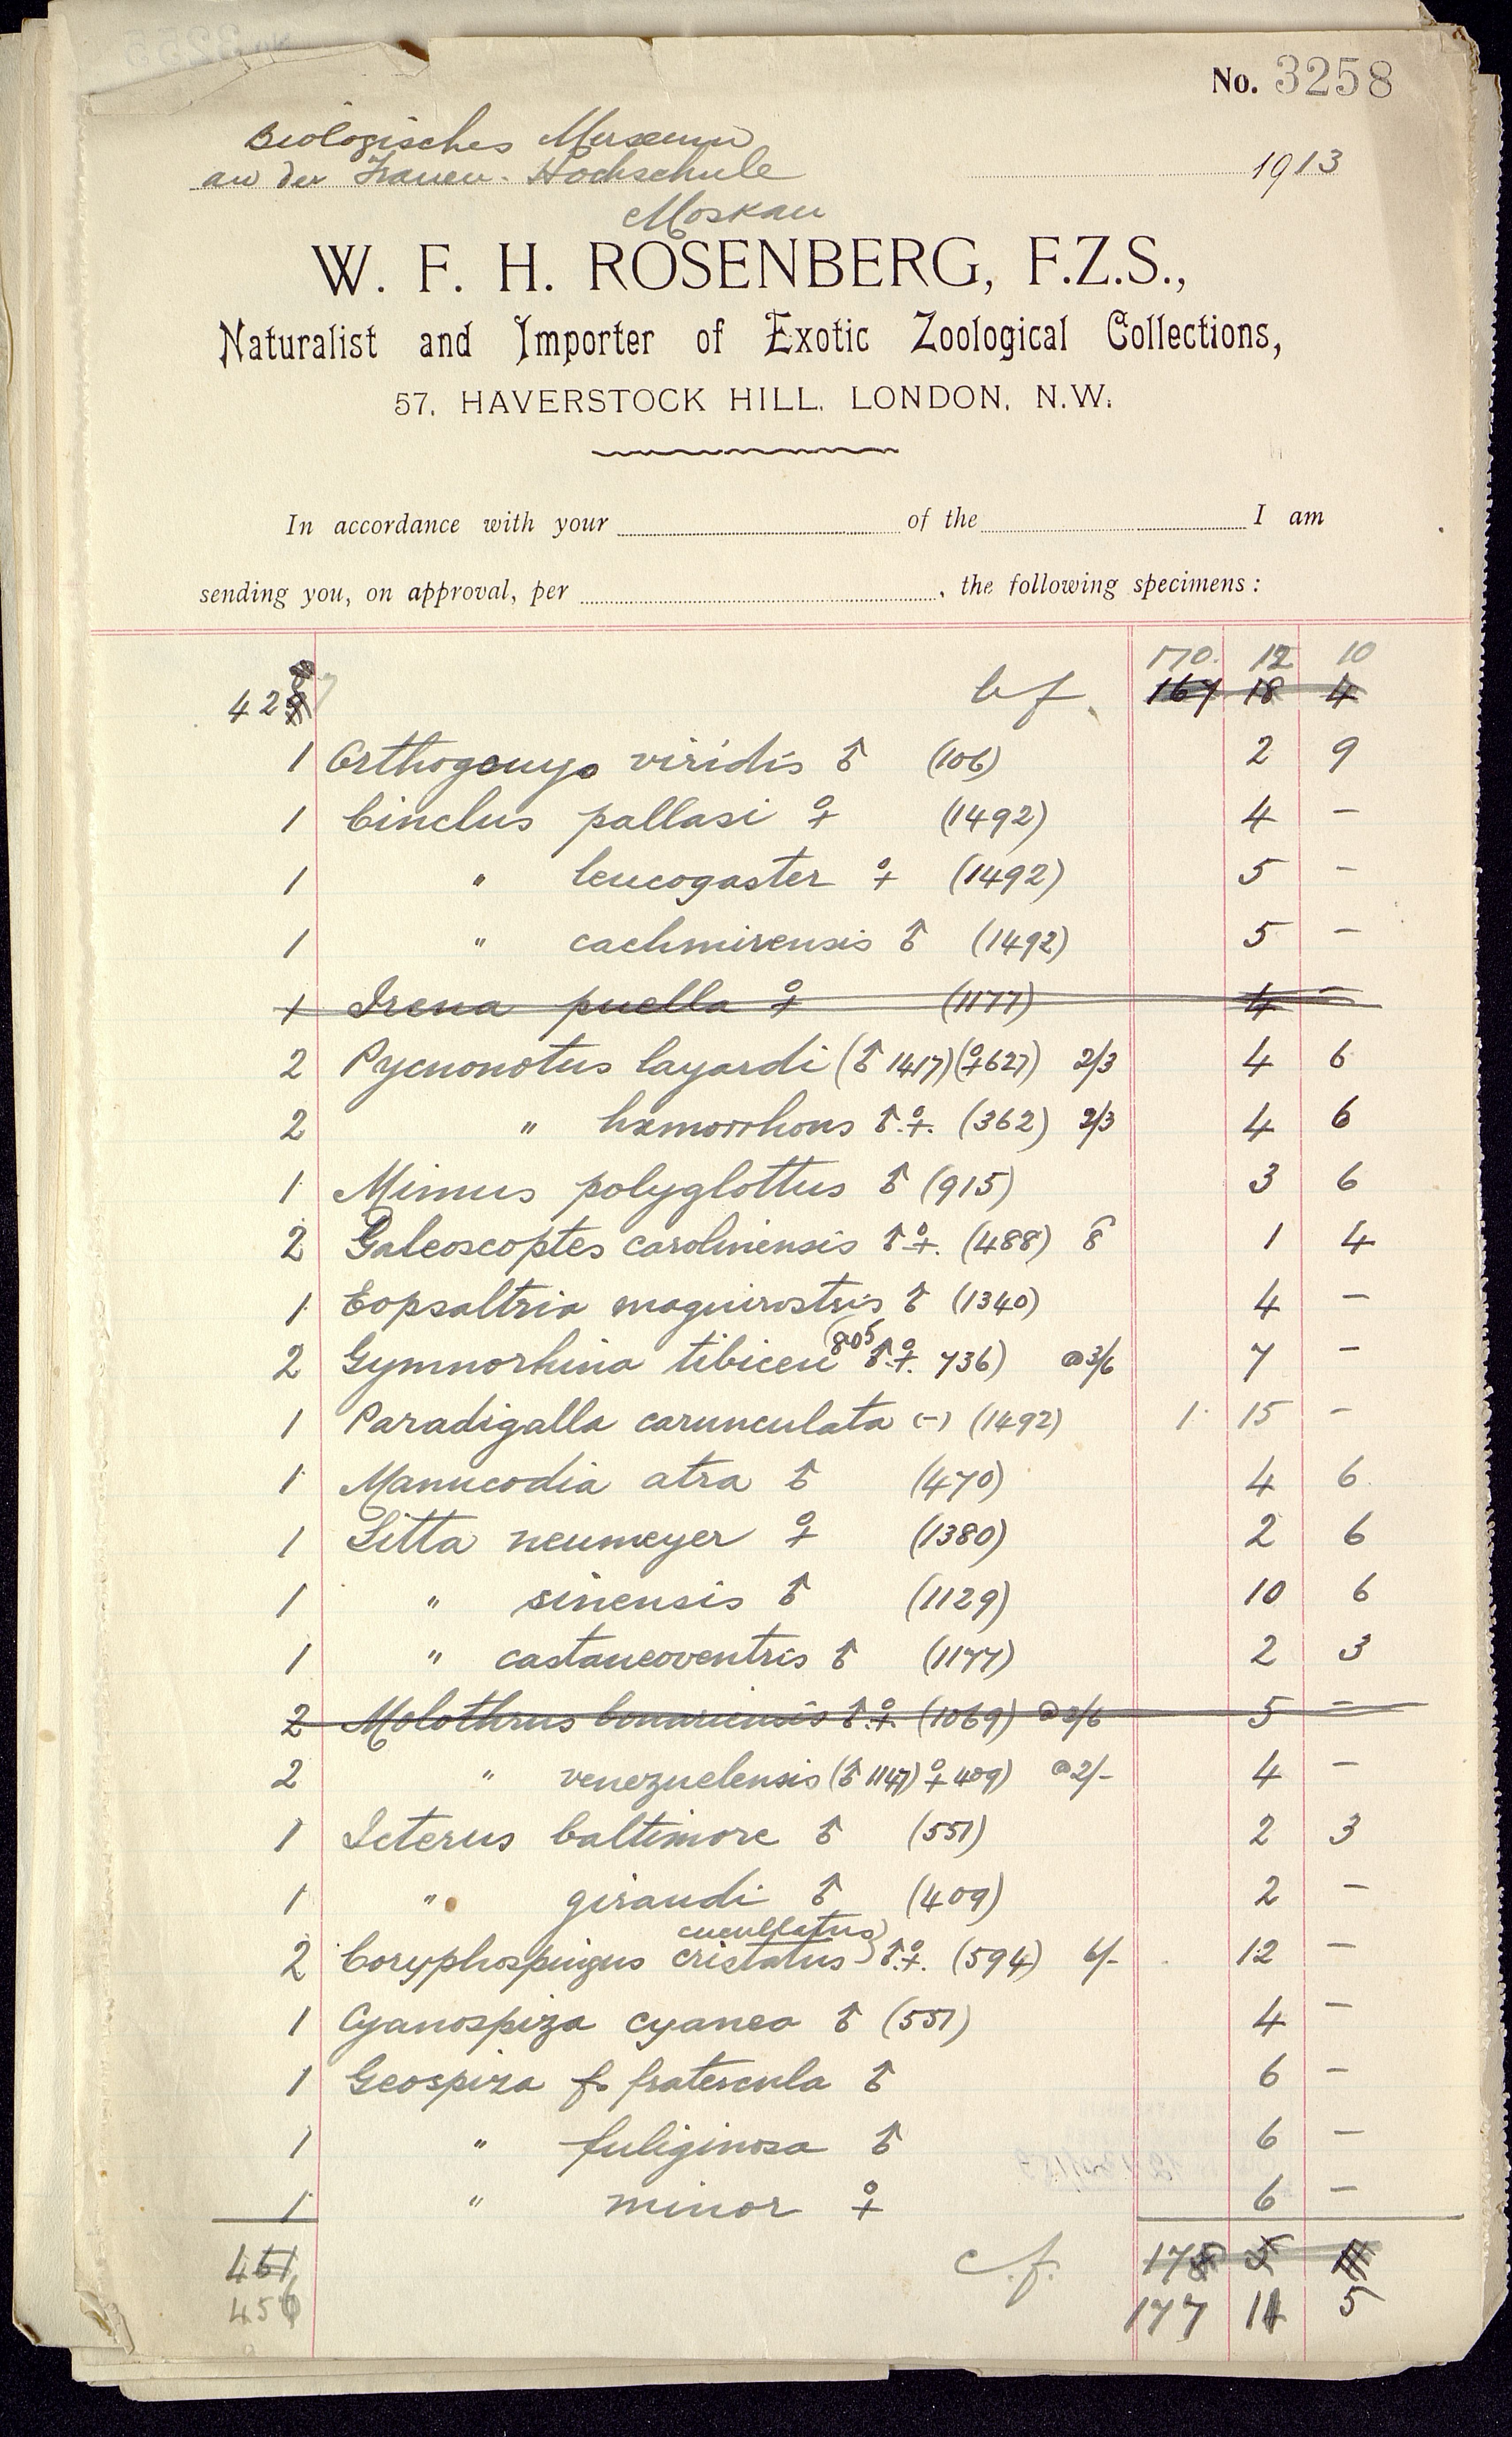 No. 3258
Biologisches Museum
an der Frauen-Hochschule 1913
Moskau
W. F. H. ROSENBERG, F.Z.S.,
Naturalist and Importer of Exotic Zoological Collections,
57, HAVERSTOCK HILL, LONDON, N.W.
In accordance with your of the I am
sending you, on approval, per , the following specimens:
170. 12 10
42 bf. 167 18 4
1 Orthogonys viridis ♂ (106) 2 9
1 Cinclus pallasi ♀ (1492) 4 –
1 " leucogaster ♀ (1492) 5 –
1 " cachmirensis ♂ (1492) 5 –
1 Irena puella ♀ (1177) 4 –
2 Pycnonotus layardi (♂ 1417) (♀ 627) 2/3 4 6
2 " hæmorrhous ♂.♀. (362) 2/3 4 6
1 Mimus polyglottus ♂ (915) 3 6
2 Galeoscoptes carolinensis ♂♀. (488) 8 1 4
1 Eopsaltria magnirostris ♂ (1340) 4 –
2 Gymnorhina tibicen (805 ♂.♀. 736) @3/6 7 –
1 Paradigalla carunculata (–) (1492) 1 15 –
1 Manucodia atra ♂ (470) 4 6
1 Sitta neumeyer ♀ (1380) 2 6
1 " sinensis ♂ (1129) 10 6
1 " castaneoventris ♂ (1177) 2 3
2 Molothrus bonariensis ♂.♀. (1069) @2/6 5 –
2 " venezuelensis (♂ 1147) ♀ 409) @2/- 4 –
1 Icterus baltimore ♂ (551) 2 3
1 " giraudi ♂ (409) 2 –
cucullatus
2 Coryphospingus cristatus ♂.♀. (594) 6/- 12 –
1 Cyanospiza cyanea ♂ (551) 4 –
1 Geospiza f. fratercula ♂ 6 –
1 " fuliginosa ♂ 6 –
1 " minor ♀ 6 –
461 c.f. 178 5
456 177 11 5